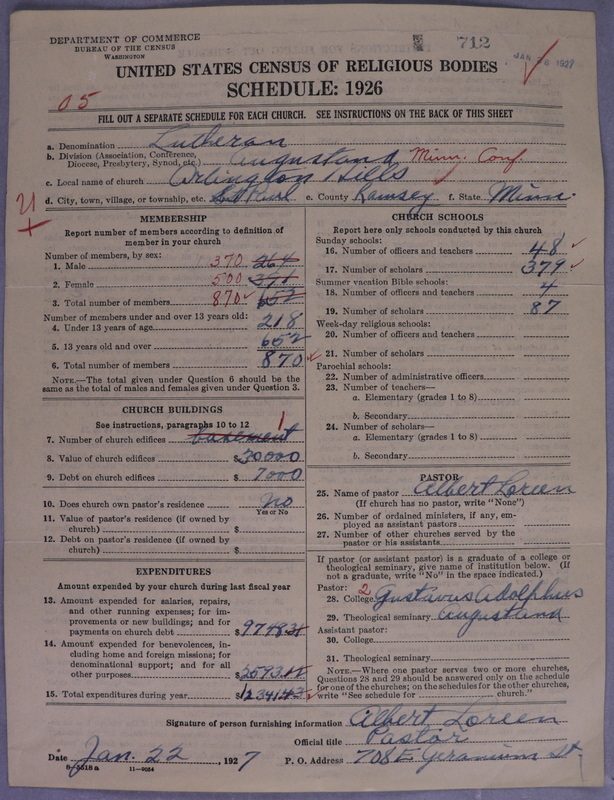 DEPARTMENT OF COMMERCE
BUREAU OF THE CENSUS
WASHINGTON
712
UNITED STATES CENSUS OF RELIGIOUS BODIES
SCHEDULE: 1926
05
FILL OUT A SEPARATE SCHEDULE FOR EACH CHURCH. SEE INSTRUCTIONS ON THE BACK OF THIS SHEET
a. Denomination Lutheran
b. Division (Association, Conference, Diocese, Presbytery, Synod, etc.) Augustana Minn. Conf.
c. Local name of church Arlington Hills
d. City, town, village, or township, etc. St Paul e. County Ramsey f. State Minn.
MEMBERSHIP
Report number of members according to definition of
member in your church
Number of members, by sex:
1. Male 370 264
2. Female 500
3. Total number of members 870 652
Number of members under and over 13 years old:
4. Under 13 years of age 218
5. 13 years old and over 652
6. Total number of members 870
NOTE.—The total given under Question 6 should be the
same as the total of males and females given under Question 3.
CHURCH BUILDINGS
See instructions, paragraphs 10 to 12
7. Number of church edifices basement 1
8. Value of church edifices $30000
9. Debt on church edifices $7000
10. Does church own pastor's residence No
Yes or No
11. Value of pastor's residence (if owned by
church) $
12. Debt on pastor's residence (if owned by
church) $
EXPENDITURES
Amount expended by your church during last fiscal year
13. Amount expended for salaries, repairs,
and other running expenses; for im-
provements or new buildings; and for
payments on church debt $9748.31
14. Amount expended for benevolences, in-
cluding home and foreign missions; for
denominational support; and for all
other purposes $2593.12
15. Total expenditures during year $12341.43
CHURCH SCHOOLS
Report here only schools conducted by this church
Sunday schools:
16. Number of officers and teachers 48
17. Number of scholars 379
Summer vacation Bible schools:
18. Number of officers and teachers 4
19. Number of scholars 87
Week-day religious schools:
20. Number of officers and teachers
21. Number of scholars
Parochial schools:
22. Number of administrative officers
23. Number of teachers—
a. Elementary (grades 1 to 8)
b. Secondary
24. Number of scholars—
a. Elementary (grades 1 to 8)
b. Secondary
PASTOR
25. Name of pastor Albert Loreen
(If church has no pastor, write "None")
26. Number of ordained ministers, if any, em-
ployed as assistant pastors
27. Number of other churches served by the
pastor or his assistants
If pastor (or assistant pastor) is a graduate of a college or
theological seminary, give name of institution below. (If
not a graduate, write "No" in the space indicated.)
Pastor: 2
28. College Gustavus Adolphus
29. Theological seminary Augustana
Assistant pastor:
30. College
31. Theological seminary
NOTE.—Where one pastor serves two or more churches,
Questions 28 and 29 should be answered only on the schedule
for one of the churches; on the schedules for the other churches,
write "See schedule for ______ church."
Signature of person furnishing information Albert Loreen
Official title Pastor
Date Jan. 22, 1927 P. O. Address 708 E Geranium St
8-5518a 11-9034